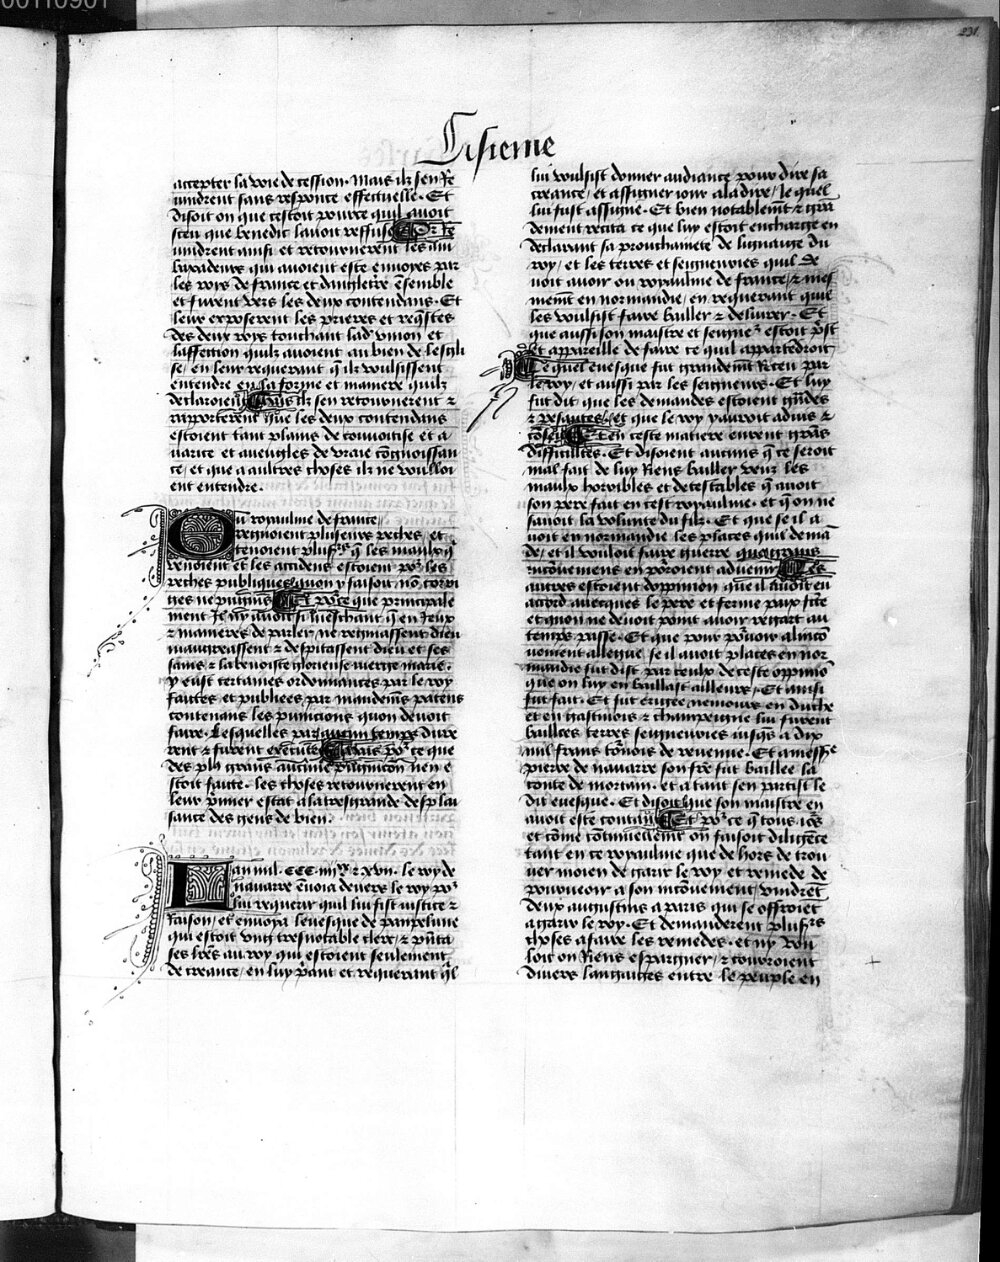 00110901
231
Cisieme
accepter la voie de cession. Mais ilz sen Re
vindrent sans response effectuelle. Et
disoit on que cestoit pource quil avoit
sceu que benedic lavoit reffuse Or se
vindrent ainsi et retournerent les am
baxadeurs qui avoient este envoyes par
les roys de france et dangleterre ensemble
et furent vers les deux contendans. Et
leur exposerent les prieres et reqstes
des deux roys touchant lad' union et
laffection quilz avoient au bien de legli
se, en leur requerant q ilz voulsissent
entendre en la forme et maniere quilz
declaroient Mais ilz sen retournerent et
rapporterent que les deux contendans
estoient tant plains de convoitise et a
varice et aveugles de vraie congnoissan
ce, et que a aultres choses ilz ne voulloi
ent entendre.
Ou royaulme de france
regnoient pluseurs pechez, et
tenoient plusrs q les maulx q
venoient et les accidens estoient por les
pechez publiques quon y faisoit non corri
ges ne pugnis Et porce que principale
ment Il ny avoit si meschant q en Jeux
et manieres de parler ne regniassent dieu
maugreassent et despitassent dieu et ses
sains et la benoiste glorieuse vierge marie.
y eust certaines ordonnances par le roy
faictes et publiees par mandems patens
contenans les punicions quon devoit
faire. Lesquelles par aucun temps dure
rent et furent execute Mais por ce que
des pls grans aucune pugnicon nen e
stoit faicte. les choses retournerent en
leur pmier estat a la tresgrande desplai
sance des gens de bien.
Lan mil. CCC. iiijxx et xvii. le roy de
navarre envoia devers le roy por
lui requerir quil lui fist justice et
Raison, et envoya levesque de pampelune
qui estoit ung tresnotable clerc, et pnta
ses lres au roy qui estoient seulement
de creance, en luy priant et requerant ql
lui voulsist donner audiance pour dire sa
creance, et assigner jour a la dire, le quel
lui fust assigne. Et bien notablemt et gra
dement recita ce que luy estoit encharge en
declarant sa prouchainete de lignaige du
roy, et les terres et seigneuries quil de
voit avoir ou royaulme de france, et mes
mement en normandie, en requerant que
les voulsist faire bailler et delivrer. Et
que aussi son maistre et seigner estoit pst
et appareille de faire ce quil appartendroit
Lequel evesque fut grandemt Receu par
le roy, et aussi par les seigneurs. Et luy
fut dit que les demandes estoient grandes
et pesantes, et que le roy y auroit advis et
conseil Et en ceste matiere eurent grans
difficultes. Et disoient aucuns q ce seroit
mal fait de luy Riens bailler veuz les
maulx horribles et detestables q avoit
son pere fait en cest royaulme. et q on ne
savoit la volunte du filz. Et que se il a
voit en normandie les places quil deman
de, et il vouloit faire guerre que grans
inconveniens en porroient advenir Les
autres estoient doppinion que il avoit eu
accord avecques le pere et ferme paix fcte
et quon ne devoit point avoir regart au
temps passe. Et que pour povoir a linco
venient allegue se il avoit places en nor
mandie fut dist par ceulx de ceste oppinio
que on luy en baillast ailleurs. Et ainsi
fut fait. Et fut erigee nemours en duche
et en gastinois et champeigne lui furent
baillees terres seigneuries jusqs a dix
mil frans tournois de revenue. Et a messre
pierre de navarre son frere fut baillee la
conte de mortain. et a tant sen partist le
dit evesque. Et disoit que son maistre en
avoit este content Et por ce q tous jors
et come continuelement on faisoit diligence
tant en ce royaulme que de hors de trou
ver moien de garir le roy et remede de
pourveoir a son inconvenient, vindret
deux augustins a paris qui se offroiet
a garir le roy. Et demanderent plusrs
choses a faire les remedes. et ny vou
loit on Riens espargner, et couroient
divers langaiges entre le peuple en